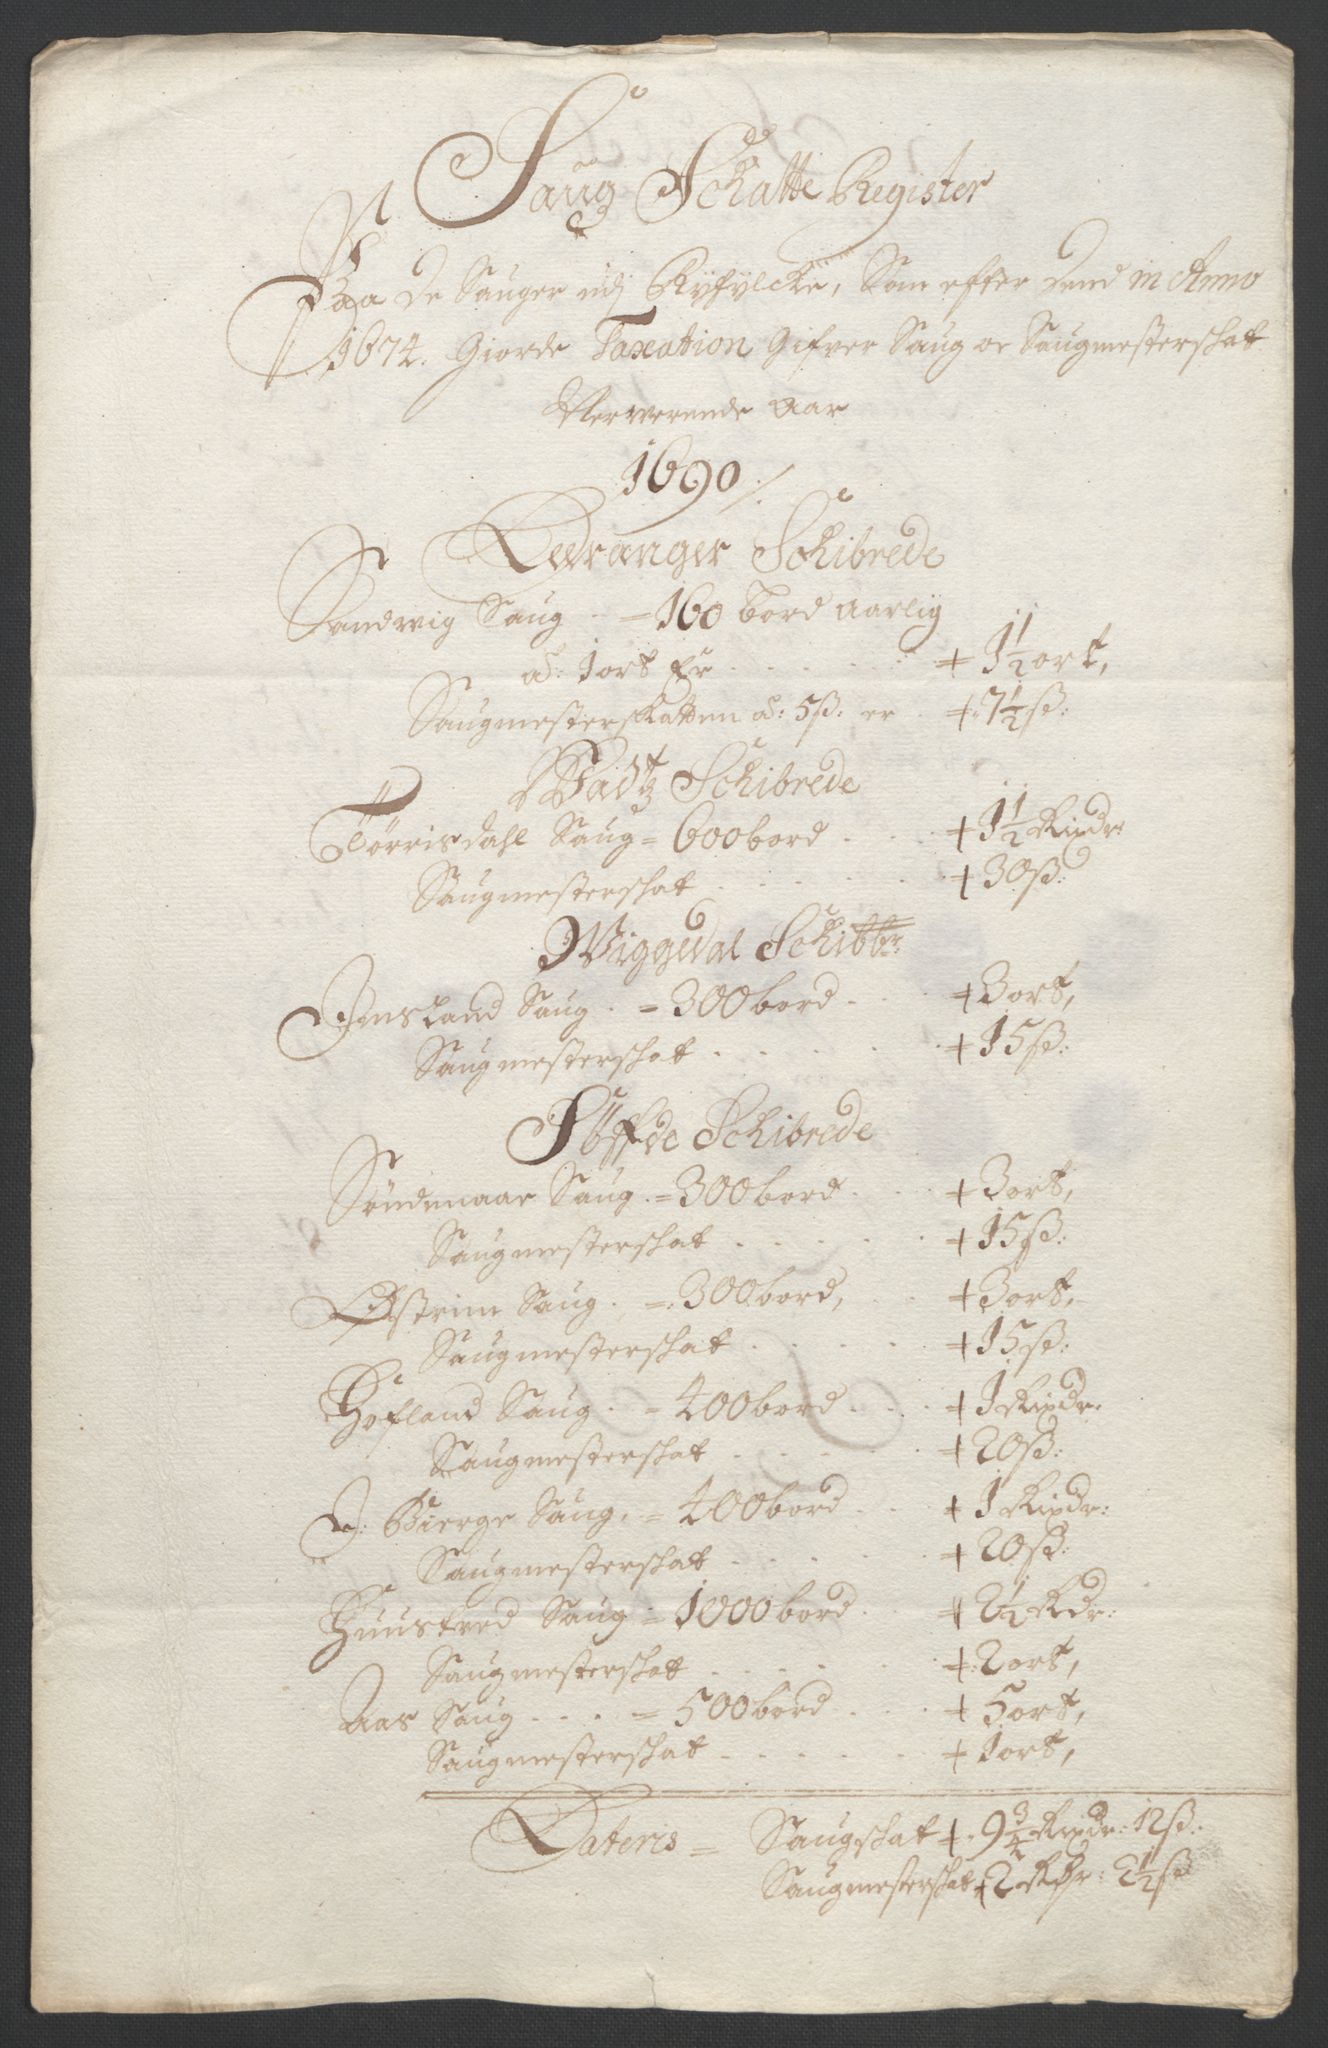 Saug Schatte Register
Paa De Sauger udj Ryfylcke, Som efter dend in Anno
1674. Giorde Taxation Gifver Saug oc Saugmesterschat
Nerwerende Aar
1690/.
Leeranger Schibrede
Sandwig Saug . = 160 bord Aarlig
ad: 1 ort Er . . . . . + 1½ ort,
Saugmesterskatten ad: 5ß: er . + 7½ ß:
Wadtz Schibrede
Tørrisdahl Saug = 600 bord . . . + 1½ Rixdr:
Saugmesterschat . . . . . + 30ß:
Wiggedal Schibbr:
Imsland Saug . = 300 bord . . . + 3 ort,
Saugmesterschat . . . . . + 15ß:
Søffde Schibrede
Søndenaae Saug . = 300 bord . . . + 3 ort,
Saugmesterschat . . . . . + 15ß:
Østrim Saug . = 300 bord, . . . + 3 ort,
Saugmesterschat . . . . . + 15ß:
Hofland Saug . = 400 bord . . . + 1 Rixdr:
Saugmesterschat . . . . . + 20ß:
Ø: Bierge Saug. = 400 bord . . . + 1 Rixdr:
Saugmesterschat . . . . . + 20ß:
Huustved Saug = 1000 bord . . . + 2½ Rdr:
Saugmesterschat . . . . . + 2 ort,
Aas Saug . . . = 500 bord . . . + 5 ort,
Saugmesterschat . . . . . + 1 ort,
Lateris = Saugschat + 9¾ Rixdr: 12ß:
Saugmesterschat + 2 Rdr: 2½ ß